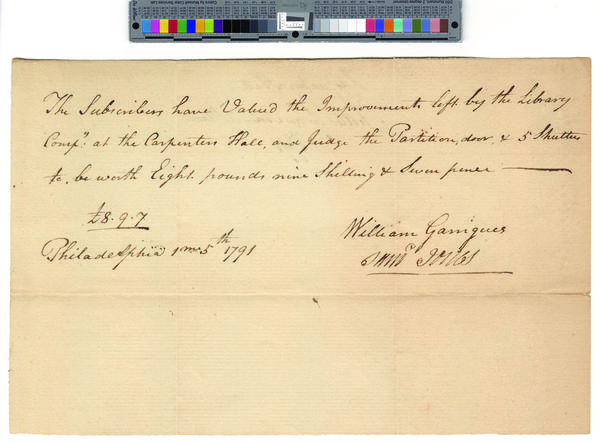 The Subscribers have Valued the Improvements left by the Library
Comp.y at the Carpenters Hall, and Judge the Partition, door, & 5 Shutters
to be worth Eight pounds nine Shilling & Seven pence
£8.9.7
Philadelphia 1 mo 5th 1791
William Garrigues
Saml Jones